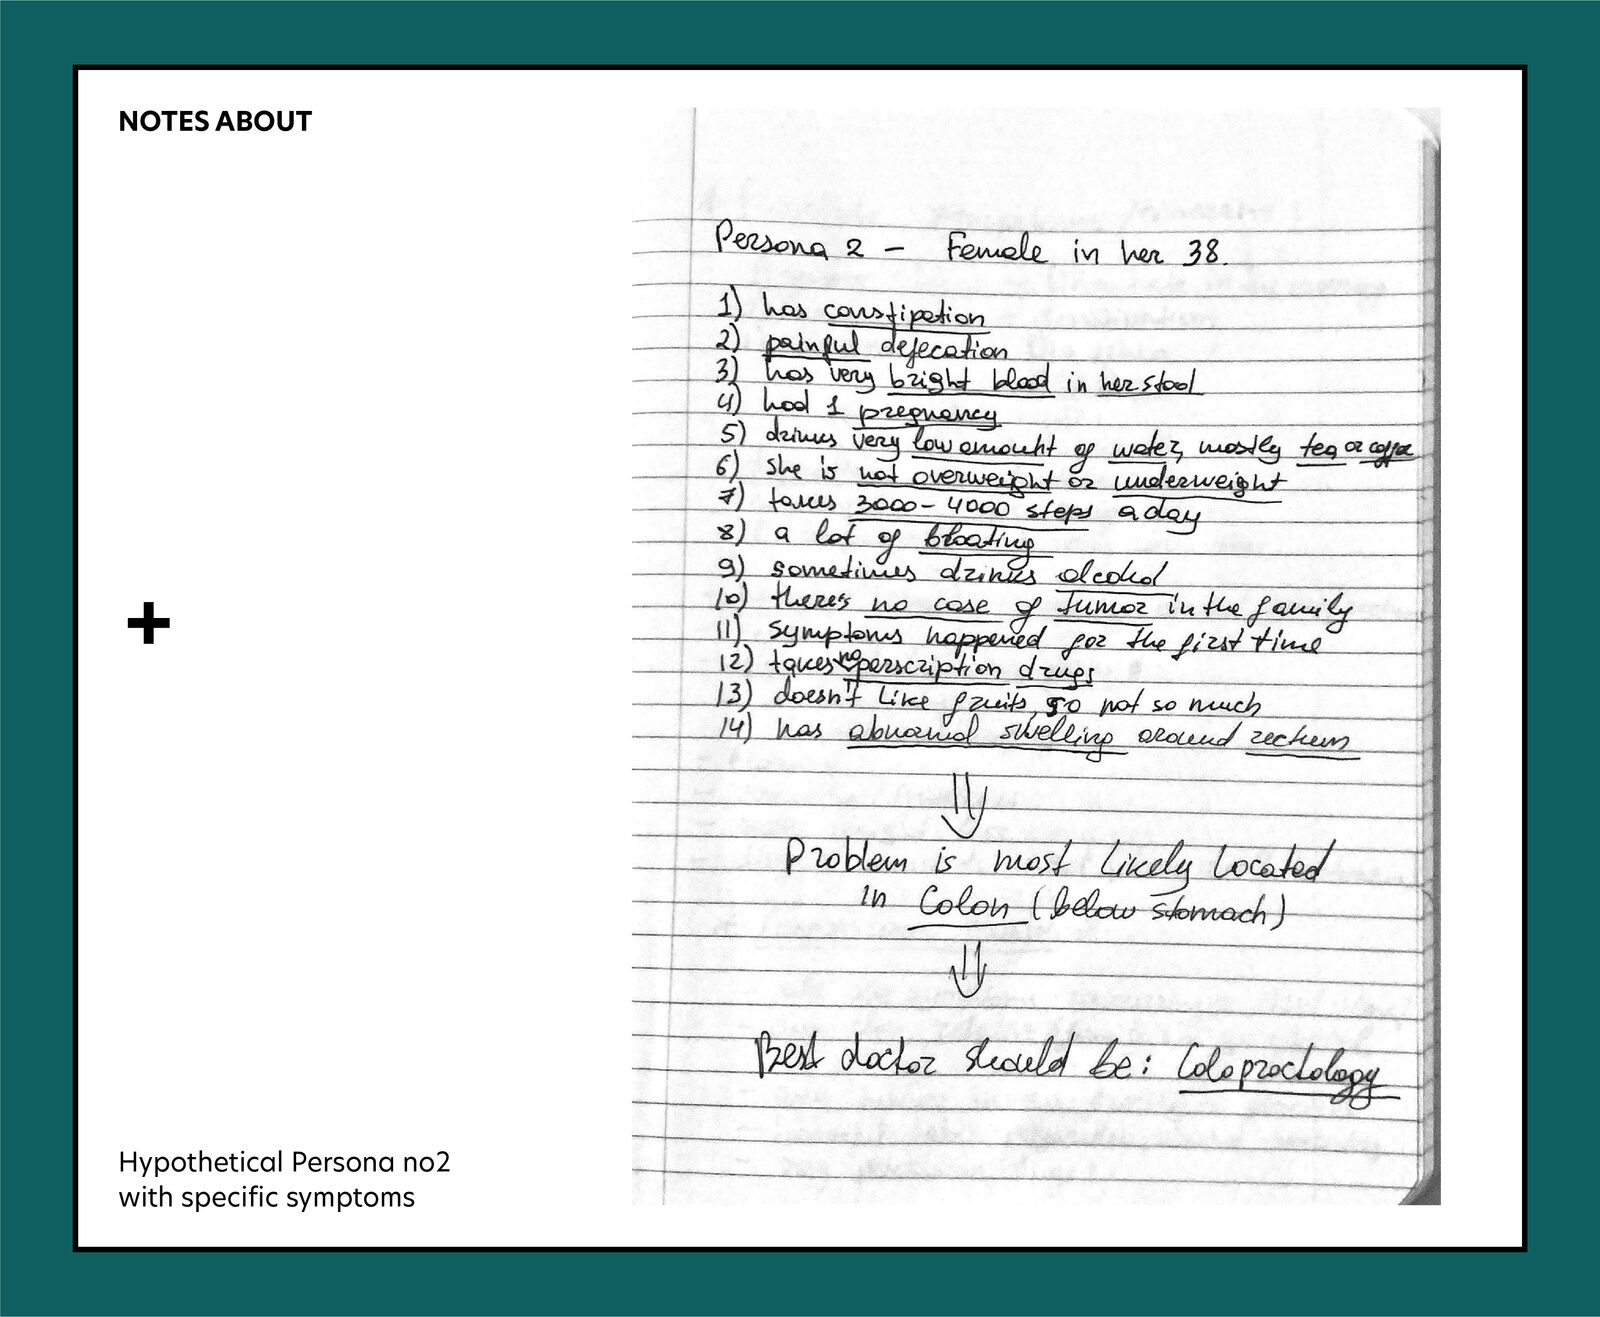 NOTES ABOUT
Persona 2 - Female in her 38.
1) has constipation
2) painful defecation
3) has very bright blood in her stool
4) had 1 pregnancy
5) drinks very low amount of water, mostly tea or coffe
6) she is not overweight or underweight
7) takes 3000-4000 steps a day
8) a lot of bloating
9) sometimes drinks alcohol
10) there's no case of tumor in the family
11) symptoms happened for the first time
12) takes no perscription drugs
13) doesn't like fruits, so not so much
14) has abnormal swelling around rectum
Problem is most likely located
in Colon (below stomach)
Best doctor should be: Coloproctology
+
Hypothetical Persona no2
with specific symptoms